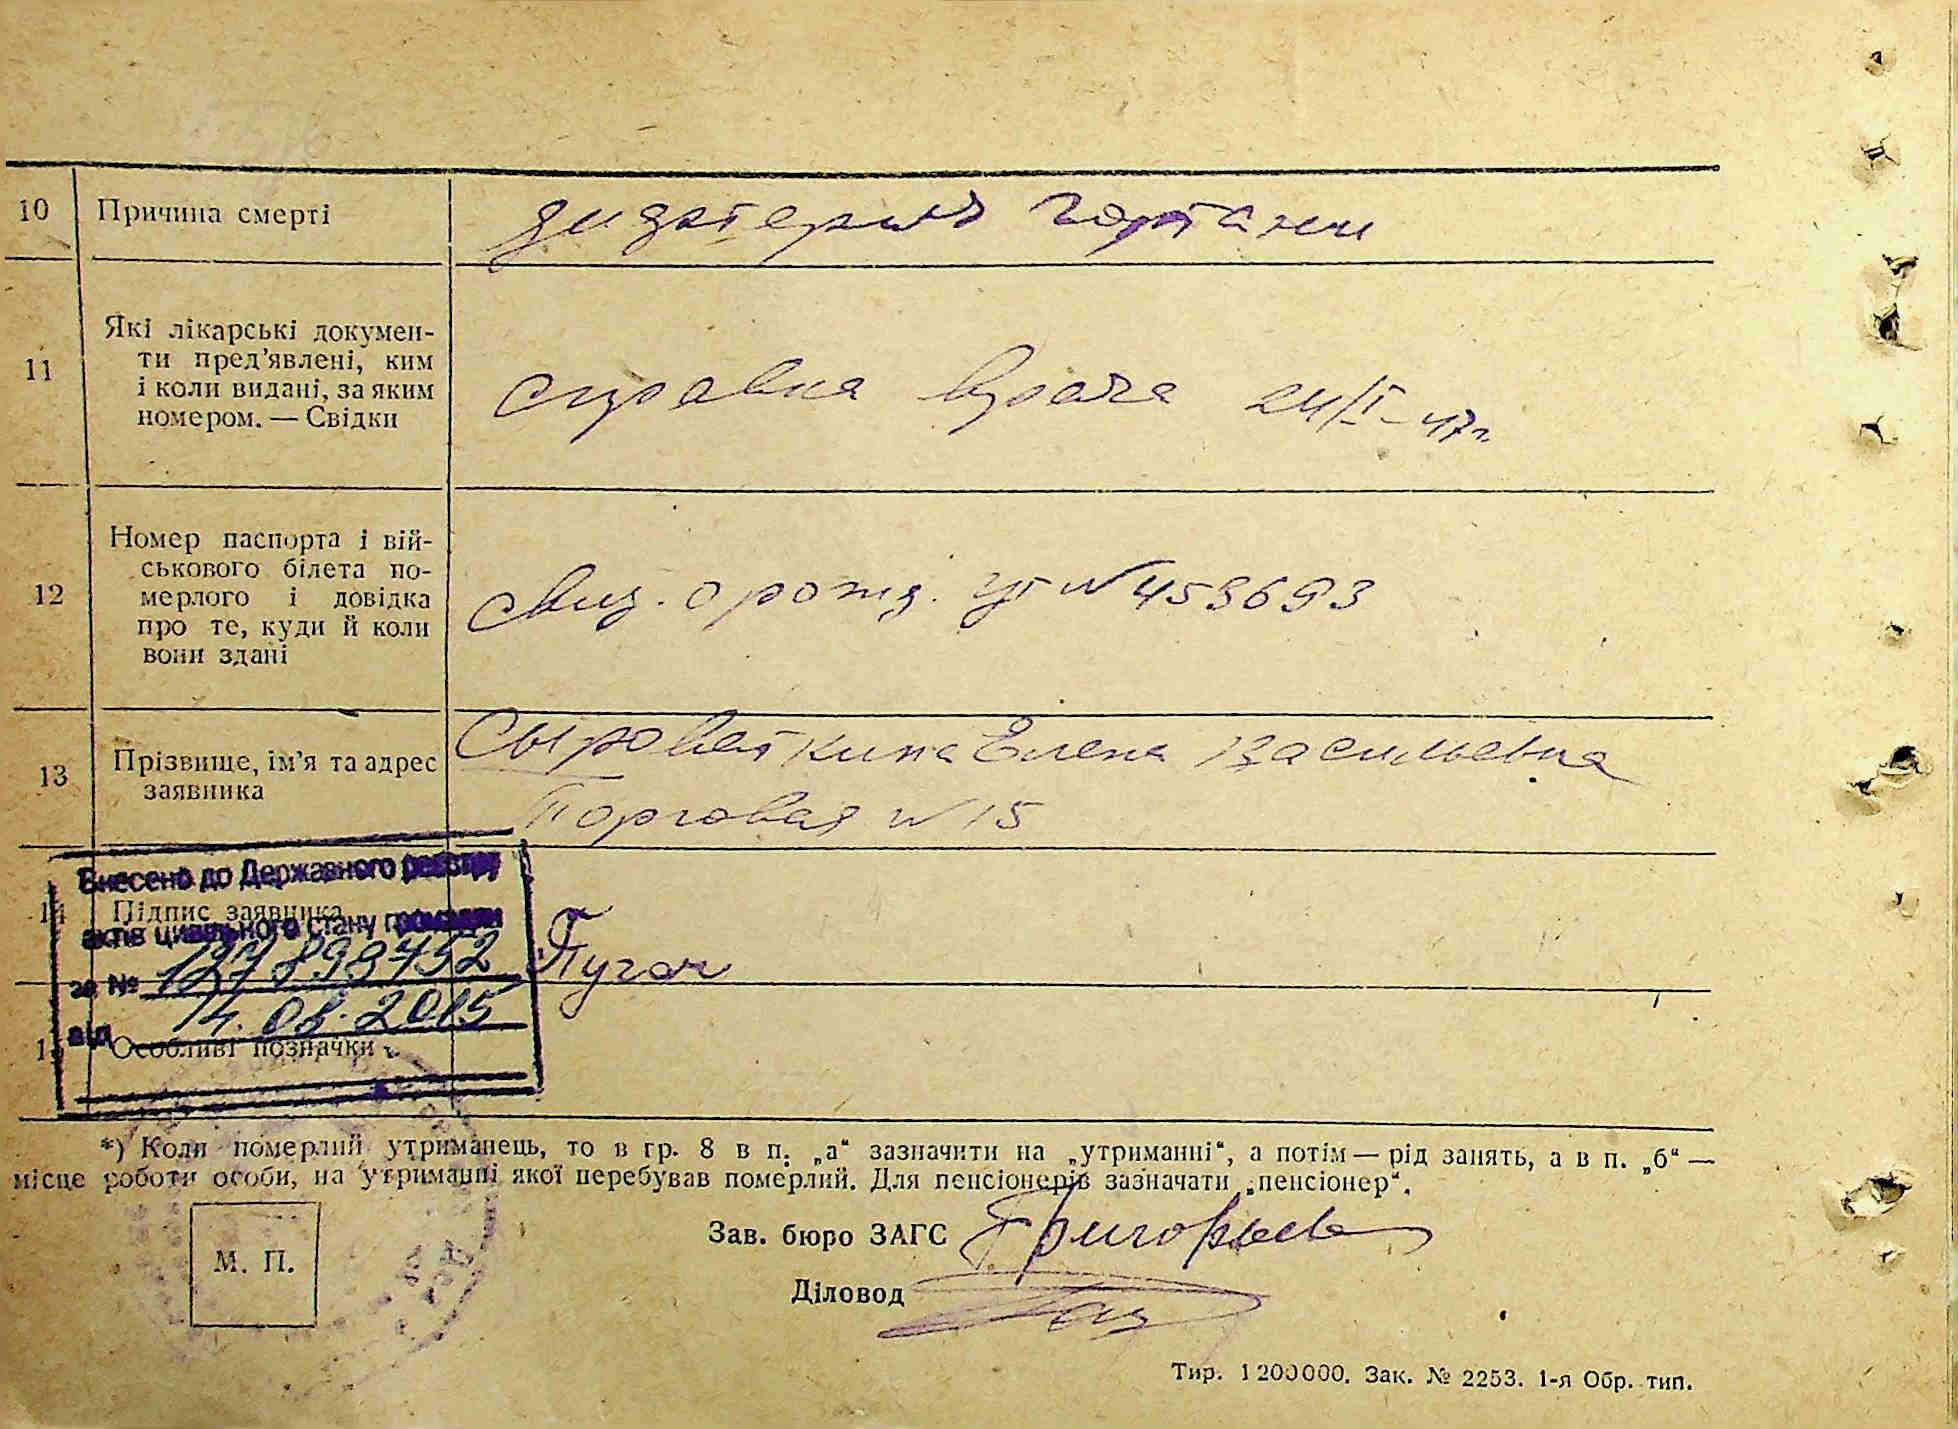 10 Причина смерті дифтерия гортани
Які лікарські докумен-
ти пред’явлені, ким
11 і коли видані, за яким справка врача 24/I-47г.
номером. — Свідки
Номер паспорта і вій-
ськового білета по-
12 мерлого і довідка свид. о рожд. № 453693
про те, куди й коли
вони здані
13 Прізвище, ім’я та адрес Сыроваткина Елена Васильевна
заявника Торговая № 15
Внесено до Державного реєстру
14 Підпис заявника
актів цивільного стану громадян
за № 127898752
від 14.08.2015
15 Особливі позначки
*) Коли померлий утриманець, то в гр. 8 в п. „а“ зазначити на „утриманні“, а потім — рід занять, а в п. „б“ —
місце роботи особи, на утриманні якої перебував померлий. Для пенсіонерів зазначати „пенсіонер“.
Зав. бюро ЗАГС Григорьев
М. П.
Діловод
Тир. 1200000. Зак. № 2253. 1-я Обр. тип.